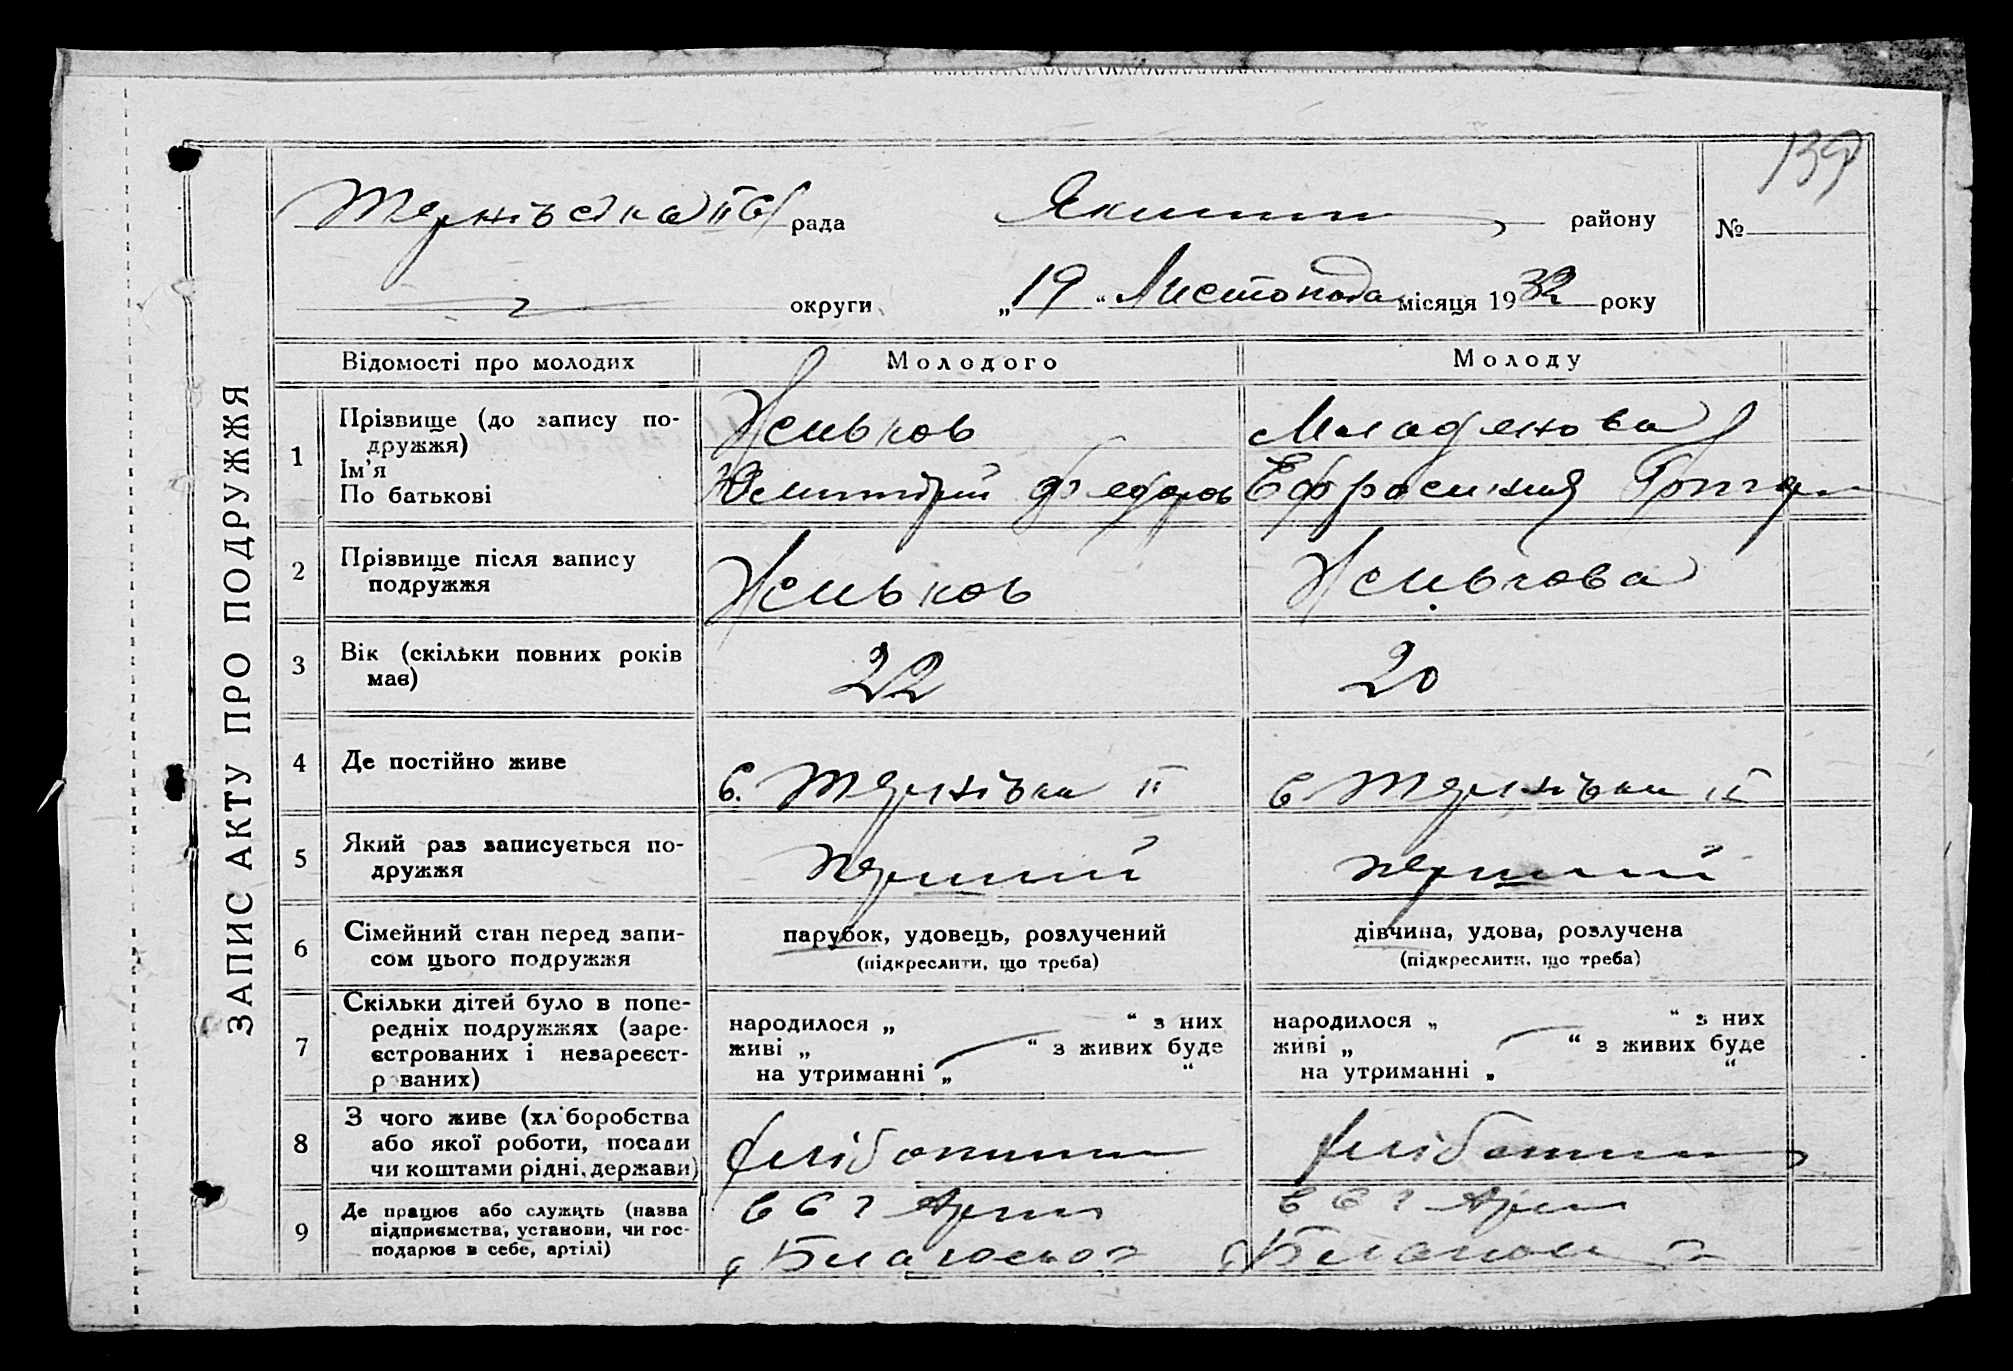 139
Тернівська II с/рада
Яким района
№
округи
„ 19 “ Листопада місяця 1932 року
ЗАПИС АКТУ ПРО ПОДРУЖЖЯ
Відомості про молодих
Молодого
Молоду
1
Прізвище (до запису по-
дружжя)
Ім'я
По батькові
Желяков
Младенова
Федоров
Ефросиния Григор
2
Прізвище після запису
подружжя
3
Вік (скільки повних років
має)
22
20
4
Де постійно живе
с. Тернівка II
с Тернівка II
5
Який раз записується по-
дружжя
перший
перший
6
Сімейний стан перед запи-
сом цього подружжя
парубок, удовець, розлучений
(підкреслити, що треба)
дівчина, удова, розлучена
(підкреслити, що треба)
7
Скільки дітей було в попе-
редніх подружжях (заре-
єстрованих і незареєст-
рованих)
народилося „ “ з них
живі „ “ з живих буде
на утриманні „ “
народилося „ “ з них
живі „ “ з живих буде
на утриманні „ “
8
З чого живе (хліборобства
або якої роботи, посади
чи коштами рідні, держави)
9
Де працює або служить (назва
підприємства, установи, чи гос-
подарює в себе, артілі)